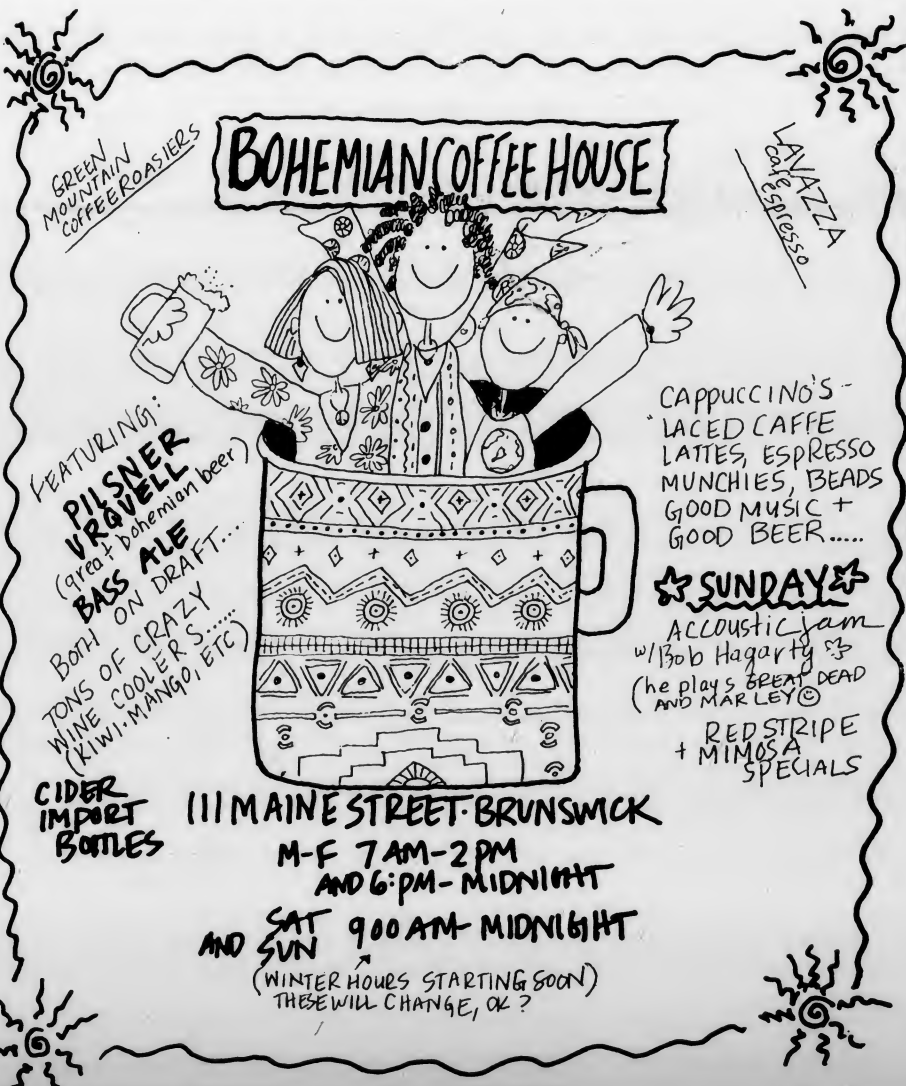 GREEN
MOUNTAIN
COFFEE ROASIERS
BOHEMIAN COFFEE HOUSE
LAVAZZA
cafe
espresso
FEATURING:
PILSNER
URQVELL
(great bohemian beer)
BASS ALE
BOTH ON DRAFT....
TONS OF CRAZY
WINE COOLERS.....
(KIWI. MANGO, ETC)
CIDER
IMPORT
BOTTLES
CAPPUCCINO'S -
LACED CAFFE
LATTES, ESPRESSO
MUNCHIES, BEADS
GOOD MUSIC +
GOOD BEER.....
SUNDAY
ACCOUSTIC jam
w/Bob Hagarty
(he plays GREAT DEAD
AND MARLEY☺
RED STRIPE
+ MIMOSA
SPECIALS
111 MAINE STREET. BRUNSWICK
M-F 7 AM-2 PM
AND 6:PM-MIDNIGHT
AND SAT SUN 900 AM-MIDNIGHT
(WINTER HOURS STARTING SOON)
THESE WILL CHANGE, OK?